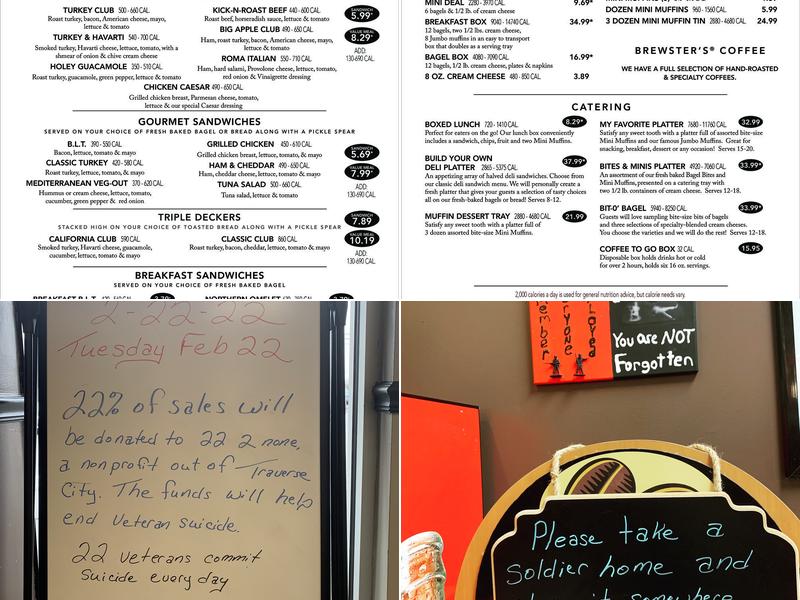 TURKEY CLUB 500 - 660 CAL
Roast turkey, bacon, American cheese, mayo,
lettuce & tomato
TURKEY & HAVARTI 540 - 700 CAL
Smoked turkey, Havarti cheese, lettuce, tomato, with a
shmear of onion & chive cream cheese
HOLEY GUACAMOLE 350 - 510 CAL
Roast turkey, guacamole, green pepper, lettuce & tomato
KICK-N-ROAST BEEF 440 - 600 CAL
Roast beef, horseradish sauce, lettuce & tomato
BIG APPLE CLUB 490 - 650 CAL
Ham, roast turkey, bacon, American cheese, mayo,
lettuce & tomato
ROMA ITALIAN 550 - 710 CAL
Ham, hard salami, Provolone cheese, lettuce, tomato,
red onion & Vinaigrette dressing
CHICKEN CAESAR 490 - 650 CAL
Grilled chicken breast, Parmesan cheese, tomato,
lettuce & our special Caesar dressing
SANDWICH
5.99*
VALUE MEAL
8.29*
ADD:
130-690 CAL
GOURMET SANDWICHES
SERVED ON YOUR CHOICE OF FRESH BAKED BAGEL OR BREAD ALONG WITH A PICKLE SPEAR
B.L.T. 390 - 550 CAL
Bacon, lettuce, tomato & mayo
CLASSIC TURKEY 420 - 580 CAL
Roast turkey, lettuce, tomato, & mayo
MEDITERRANEAN VEG-OUT 370 - 620 CAL
Hummus or cream cheese, lettuce, tomato,
cucumber, green pepper & red onion
GRILLED CHICKEN 450 - 610 CAL
Grilled chicken breast, lettuce, tomato, & mayo
HAM & CHEDDAR 490 - 650 CAL
Ham, cheddar cheese, lettuce, tomato, & mayo
TUNA SALAD 500 - 660 CAL
Tuna salad, lettuce & tomato
SANDWICH
5.69*
VALUE MEAL
7.99*
ADD:
130-690 CAL
TRIPLE DECKERS
STACKED HIGH ON YOUR CHOICE OF TOASTED BREAD ALONG WITH A PICKLE SPEAR
CALIFORNIA CLUB 590 CAL
Smoked turkey, Havarti cheese, guacamole,
cucumber, lettuce, tomato & mayo
CLASSIC CLUB 860 CAL
Roast turkey, bacon, cheddar, lettuce, tomato & mayo
SANDWICH
7.89
VALUE MEAL
10.19
ADD:
130-690 CAL
BREAKFAST SANDWICHES
SERVED ON YOUR CHOICE OF FRESH BAKED BAGEL
MINI DEAL 2280 - 3970 CAL 9.69*
6 bagels & 1/2 lb. of cream cheese
BREAKFAST BOX 9040 - 14740 CAL 34.99*
12 bagels, two 1/2 lb. cream cheese,
8 Jumbo muffins in an easy to transport
box that doubles as a serving tray
BAGEL BOX 4080 - 7090 CAL 16.99*
12 bagels, 1/2 lb. cream cheese, plates & napkins
8 OZ. CREAM CHEESE 480 - 850 CAL 3.89
DOZEN MINI MUFFINS 960 - 1560 CAL 5.99
3 DOZEN MINI MUFFIN TIN 2880 - 4680 CAL 24.99
BREWSTER'S® COFFEE
WE HAVE A FULL SELECTION OF HAND-ROASTED
& SPECIALTY COFFEES.
CATERING
BOXED LUNCH 720 - 1410 CAL 8.29*
Perfect for eatens on the go! Our lunch box conveniently
includes a sandwich, chips, fruit and two Mini Muffins.
BUILD YOUR OWN
DELI PLATTER 2865 - 5375 CAL 37.99*
An appetizing array of halved deli sandwiches. Choose from
our classic deli sandwich menu. We will personally create a
fresh platter that gives your guests a selection of tasty choices
all on our fresh-baked bagels or bread! Serves 8-12.
MUFFIN DESSERT TRAY 2880 - 4680 CAL 21.99
Satisfy any sweet tooth with a platter full of
3 dozen assorted bite-size Mini Muffins.
MY FAVORITE PLATTER 7680 - 11760 CAL 32.99
Satisfy any sweet tooth with a platter full of assorted bite-size
Mini Muffins and our famous Jumbo Muffins. Great for
snacking, breakfast, dessert or any occasion! Serves 15-20.
BITES & MINIS PLATTER 4920 - 7060 CAL 33.99*
An assortment of our fresh baked Bagel Bites and
Mini Muffins, presented on a catering tray with
two 1/2 lb. containers of cream cheese. Serves 12-18.
BIT-O' BAGEL 5940 - 8250 CAL 33.99*
Guests will love sampling bite-size bits of bagels
and three selections of specialty-blended cream cheeses.
You choose the varieties and we will do the rest! Serves 12-18.
COFFEE TO GO BOX 32 CAL 15.95
Disposable box holds drinks hot or cold
for over 2 hours, holds six 16 oz. servings.
2,000 calories a day is used for general nutrition advice, but calorie needs vary.
2-22-22
Tuesday Feb 22
22% of sales will
be donated to 22 2 none,
a non profit out of Traverse
City. The funds will help
end Veteran suicide.
22 veterans commit
Suicide every day
Loved
You are NOT
Forgotten
Please take a
Soldier home and